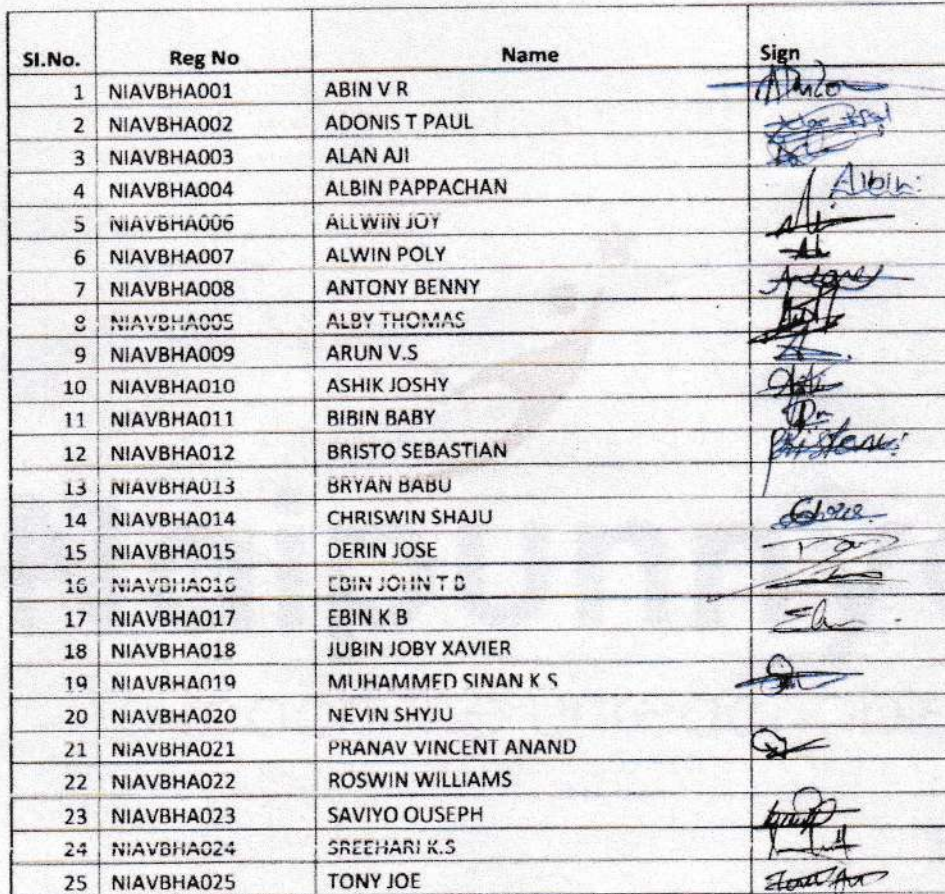 SI.No. Reg No Name Sign
1 NIAVBHA001 ABIN V R
2 NIAVBHA002 ADONIS T PAUL
3 NIAVBHA003 ALAN AJI
4 NIAVBHA004 ALBIN PAPPACHAN Albin
5 NIAVBHA006 ALLWIN JOY
6 NIAVBHA007 ALWIN POLY
7 NIAVBHA008 ANTONY BENNY Antony
8 NIAVBHA005 ALBY THOMAS
9 NIAVBHA009 ARUN V.S
10 NIAVBHA010 ASHIK JOSHY
11 NIAVBHA011 BIBIN BABY
12 NIAVBHA012 BRISTO SEBASTIAN
13 NIAVBHA013 BRYAN BABU
14 NIAVBHA014 CHRISWIN SHAJU
15 NIAVBHA015 DERIN JOSE
16 NIAVBHA016 EBIN JOHN T B
17 NIAVBHA017 EBIN K B
18 NIAVBHA018 JUBIN JOBY XAVIER
19 NIAVBHA019 MUHAMMED SINAN K S
20 NIAVBHA020 NEVIN SHYJU
21 NIAVBHA021 PRANAV VINCENT ANAND
22 NIAVBHA022 ROSWIN WILLIAMS
23 NIAVBHA023 SAVIYO OUSEPH
24 NIAVBHA024 SREEHARI K.S
25 NIAVBHA025 TONY JOE